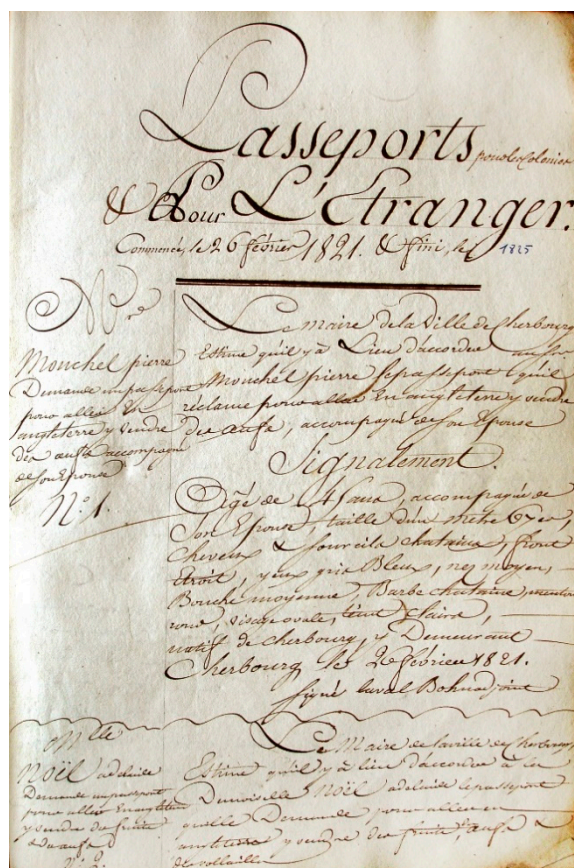 Passeports pour les Colonies
& Pour L'Etranger.
Commencé, le 26 février 1821. & fini, le 1825
Mr
Monchel pierre
Demande un passeport
pour aller En
angleterre y vendre
des oeufs accompagné
de son Epouse
N.o 1.
Le maire de la Ville de Cherbourg
Estime qu'il y à Lieu d'accorder au Sr
Monchel pierre le passeport qu'il
réclame pour aller En angleterre y vendre
des oeufs, accompagné de son Epouse
Signalement.
Agé de ans, accompagné de
Son Epouse, taille d'un metre 67 ce,
cheveux & sourcils chatains, front
Etroit, yeux gris Bleux, nez moyen,
Bouche moyenne, Barbe chataine, menton
rond, visage ovale, teint Claire,
natif de cherbourg, y Demeurant
Cherbourg le 26 février 1821.
signé adjoint
Mlle
Noël adelaide
Demande un passeport
pour aller En angleterre
y vendre des fruits
& des oeufs
Le Maire de la ville de Cherbourg
Estime qu'il y à lieu d'accorder à la
Demoiselle Noël adelaide le passeport
qu'elle Demande pour aller en
angleterre y vendre des fruits, oeufs &
de la volaille